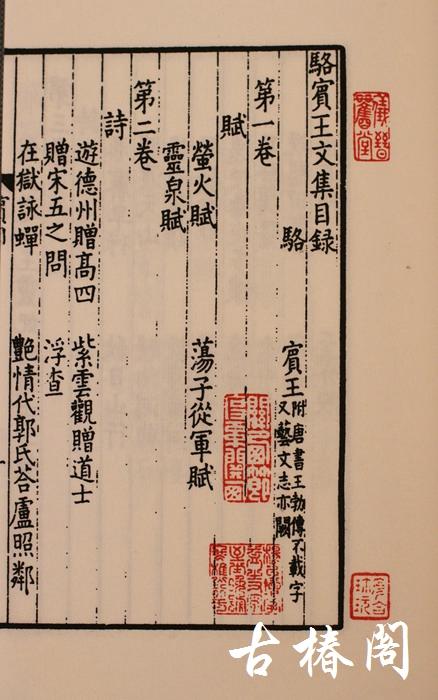 駱賓王文集目録
駱 賓王 附唐書王勃傳不載字又藝文志亦闕
第一卷
賦
螢火賦 蕩子從軍賦
靈泉賦
第二卷
詩
遊德州贈高四 紫雲觀贈道士
贈宋五之問 浮查
在獄詠蟬 艷情代郭氏荅盧照鄰
古椿閣